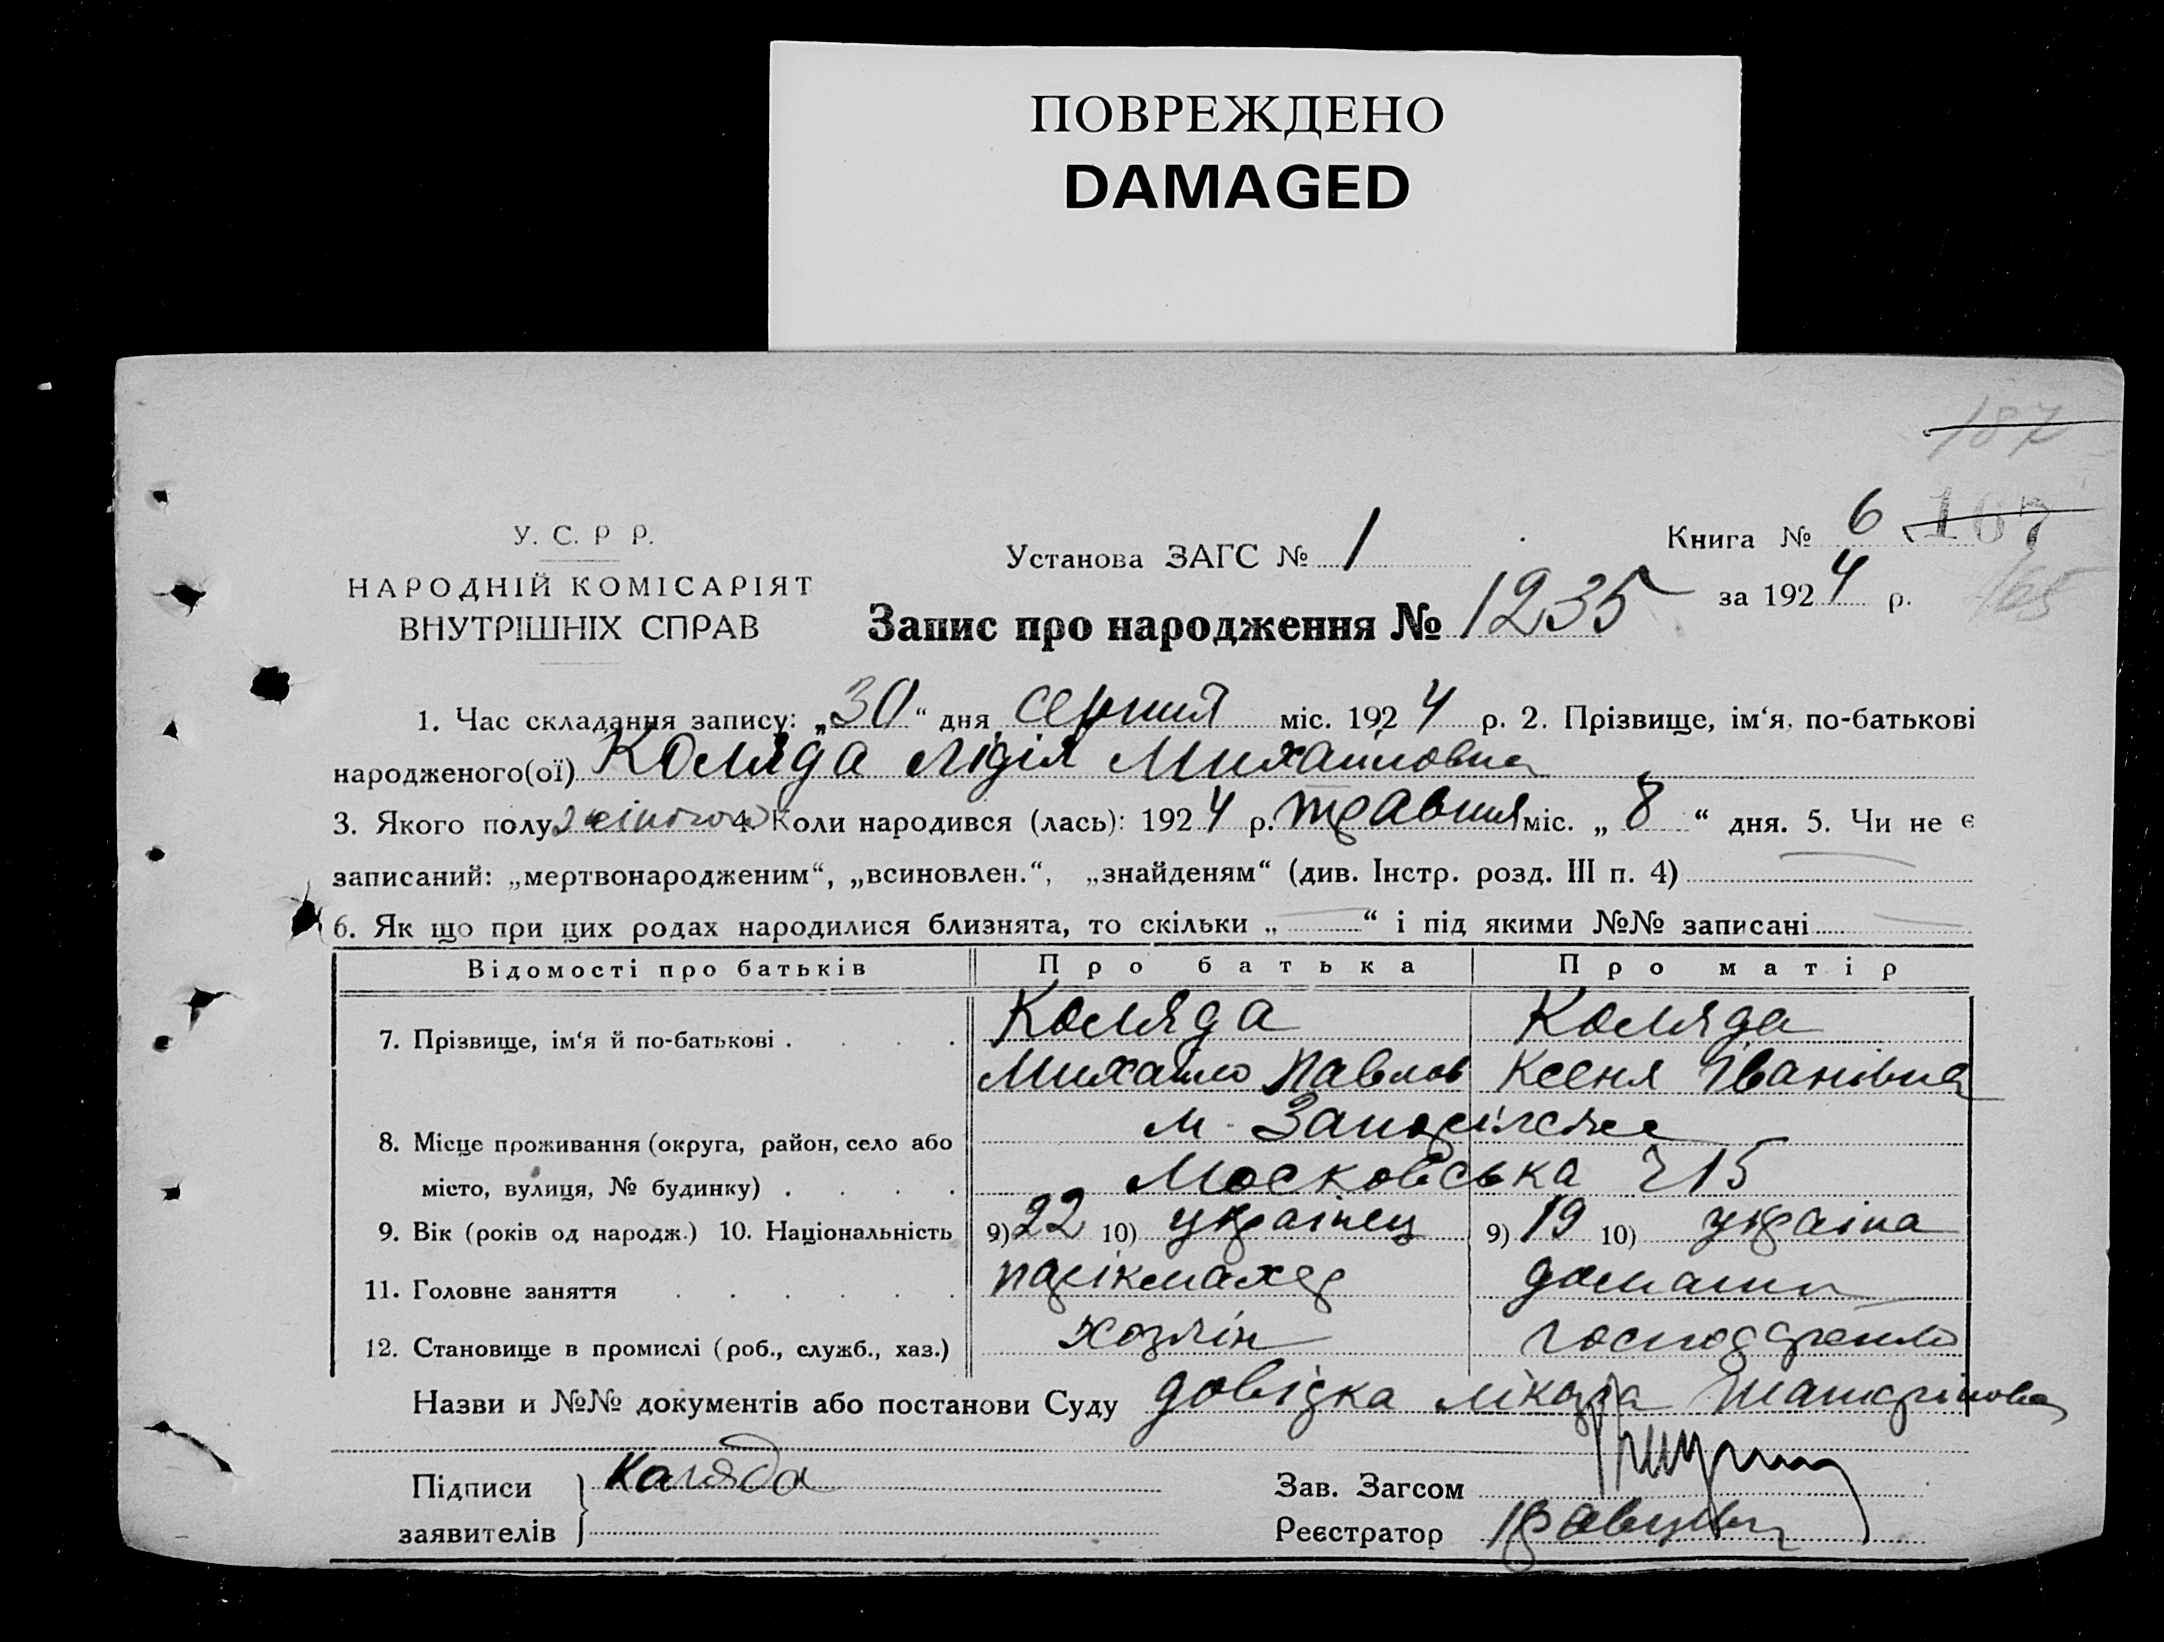 ПОВРЕЖДЕНО
DAMAGED
187
У. С. Р Р.
НАРОДНІЙ КОМІСАРІЯТ
ВНУТРІШНІХ СПРАВ
Установа ЗАГС № 1
Книга № 6 167
за 1924 р. 165
Запис про народження № 1235
1. Час складання запису: „30“ дня серпня міс. 1924 р. 2. Прізвище, ім‘я, по-батькові
народженого(ої) Коляда Лідія Михайловна
3. Якого полу жіночого 4. Коли народився (лась): 1924 р. травня міс. „8“ дня. 5. Чи не є
записаний: „мертвонародженим“, „всиновлен.“, „знайденям“ (див. Інстр. розд. III п. 4)
6. Як що при цих родах народилися близнята, то скільки „ “ і під якими №№ записані
Відомості про батьків Про батька Про матір
7. Прізвище, ім‘я й по-батькові Коляда Коляда
Михайло Павлов Ксеня Іванівна
8. Місце проживання (округа, район, село або м. Запоріжже
місто, вулиця, № будинку) Московська ч 15
9. Вік (років од народж.) 10. Національність 9) 22 10) українец 9) 19 10) украіна
11. Головне заняття парікмахер домашн
12. Становище в промислі (роб., служб., хаз.) хозяін господарство
Назви и №№ документів або постанови Суду довідка лікаря
Підписи Каляда
заявителів
Зав. Загсом
Реєстратор